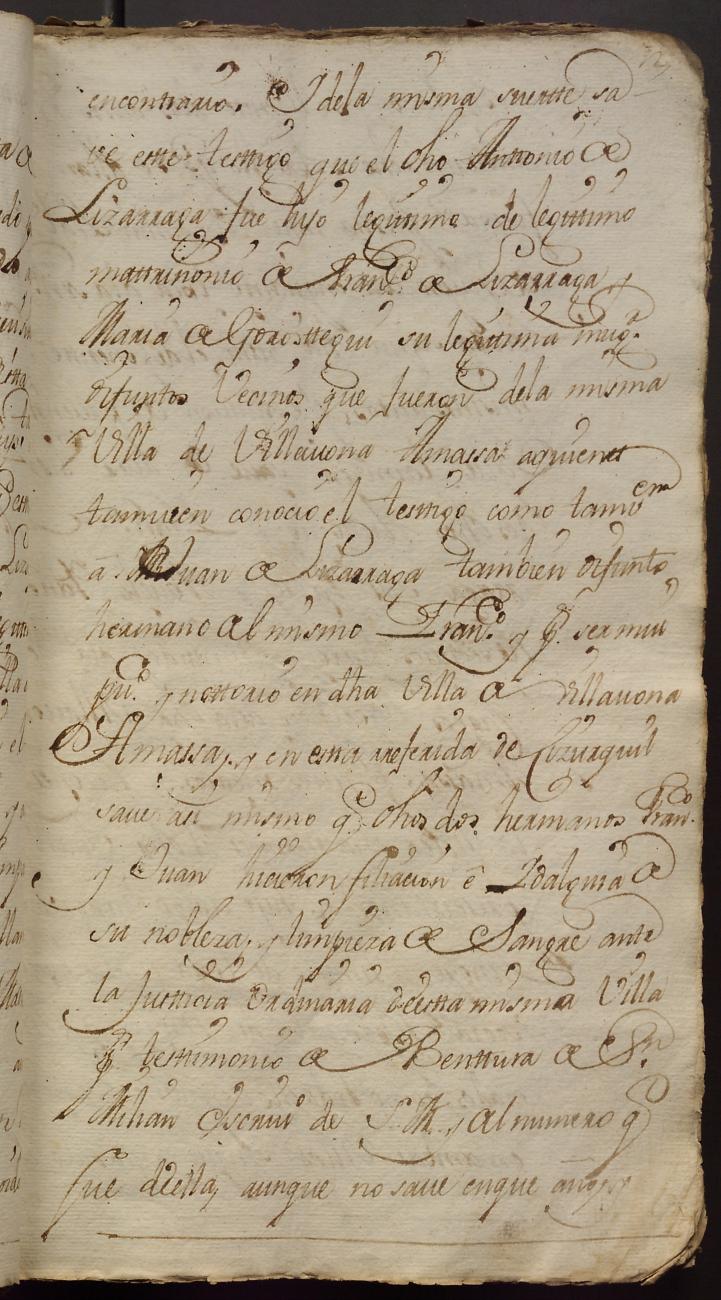 encontrario. Y dela misma suertte sa
ve este testigo que el dho Anttonio de
Lizarraga fue hijo legitimo de legittimo
mattrimonio de Franco. de Lizarraga y
Maria de Gorosttegui su legitima mugr.
difuntos Vecinos que fueron dela misma
Villa de Villavona Amassa aquienes
tamvien conocio el testigo como tamvien
a Juan de Lizarraga tambien difunto
hermano del mismo Franco. y pr. ser mui
puco. y nottorio en dha Villa de Villavona
Amassa, y en esta rreferida de Cizurquil
save assi mismo qe. dhos dos hermanos Franco.
y Juan hicieron filiacion e Idalguia de
su nobleza, y limpieza de Sangre ante
la Justicia Ordinaria deesta misma Villa
pr. testtimonio de Benttura de Sn.
Milian escrivo de S.M. y del numero qe
fue deella, aunque no save enque